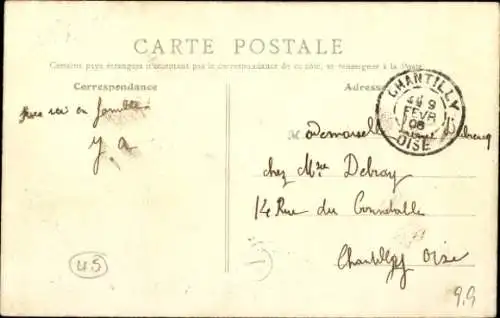 CARTE POSTALE
Certains pays étrangers n'acceptant pas la correspondance de ce côté, se renseigner à la Poste
Correspondance
Adresse
CHANTILLY
9
FEVR
06
OISE
en famille
y a
Mademoiselle
chez Mre Debray
14 Rue du Connétable
Chantilly Oise
45
9.9